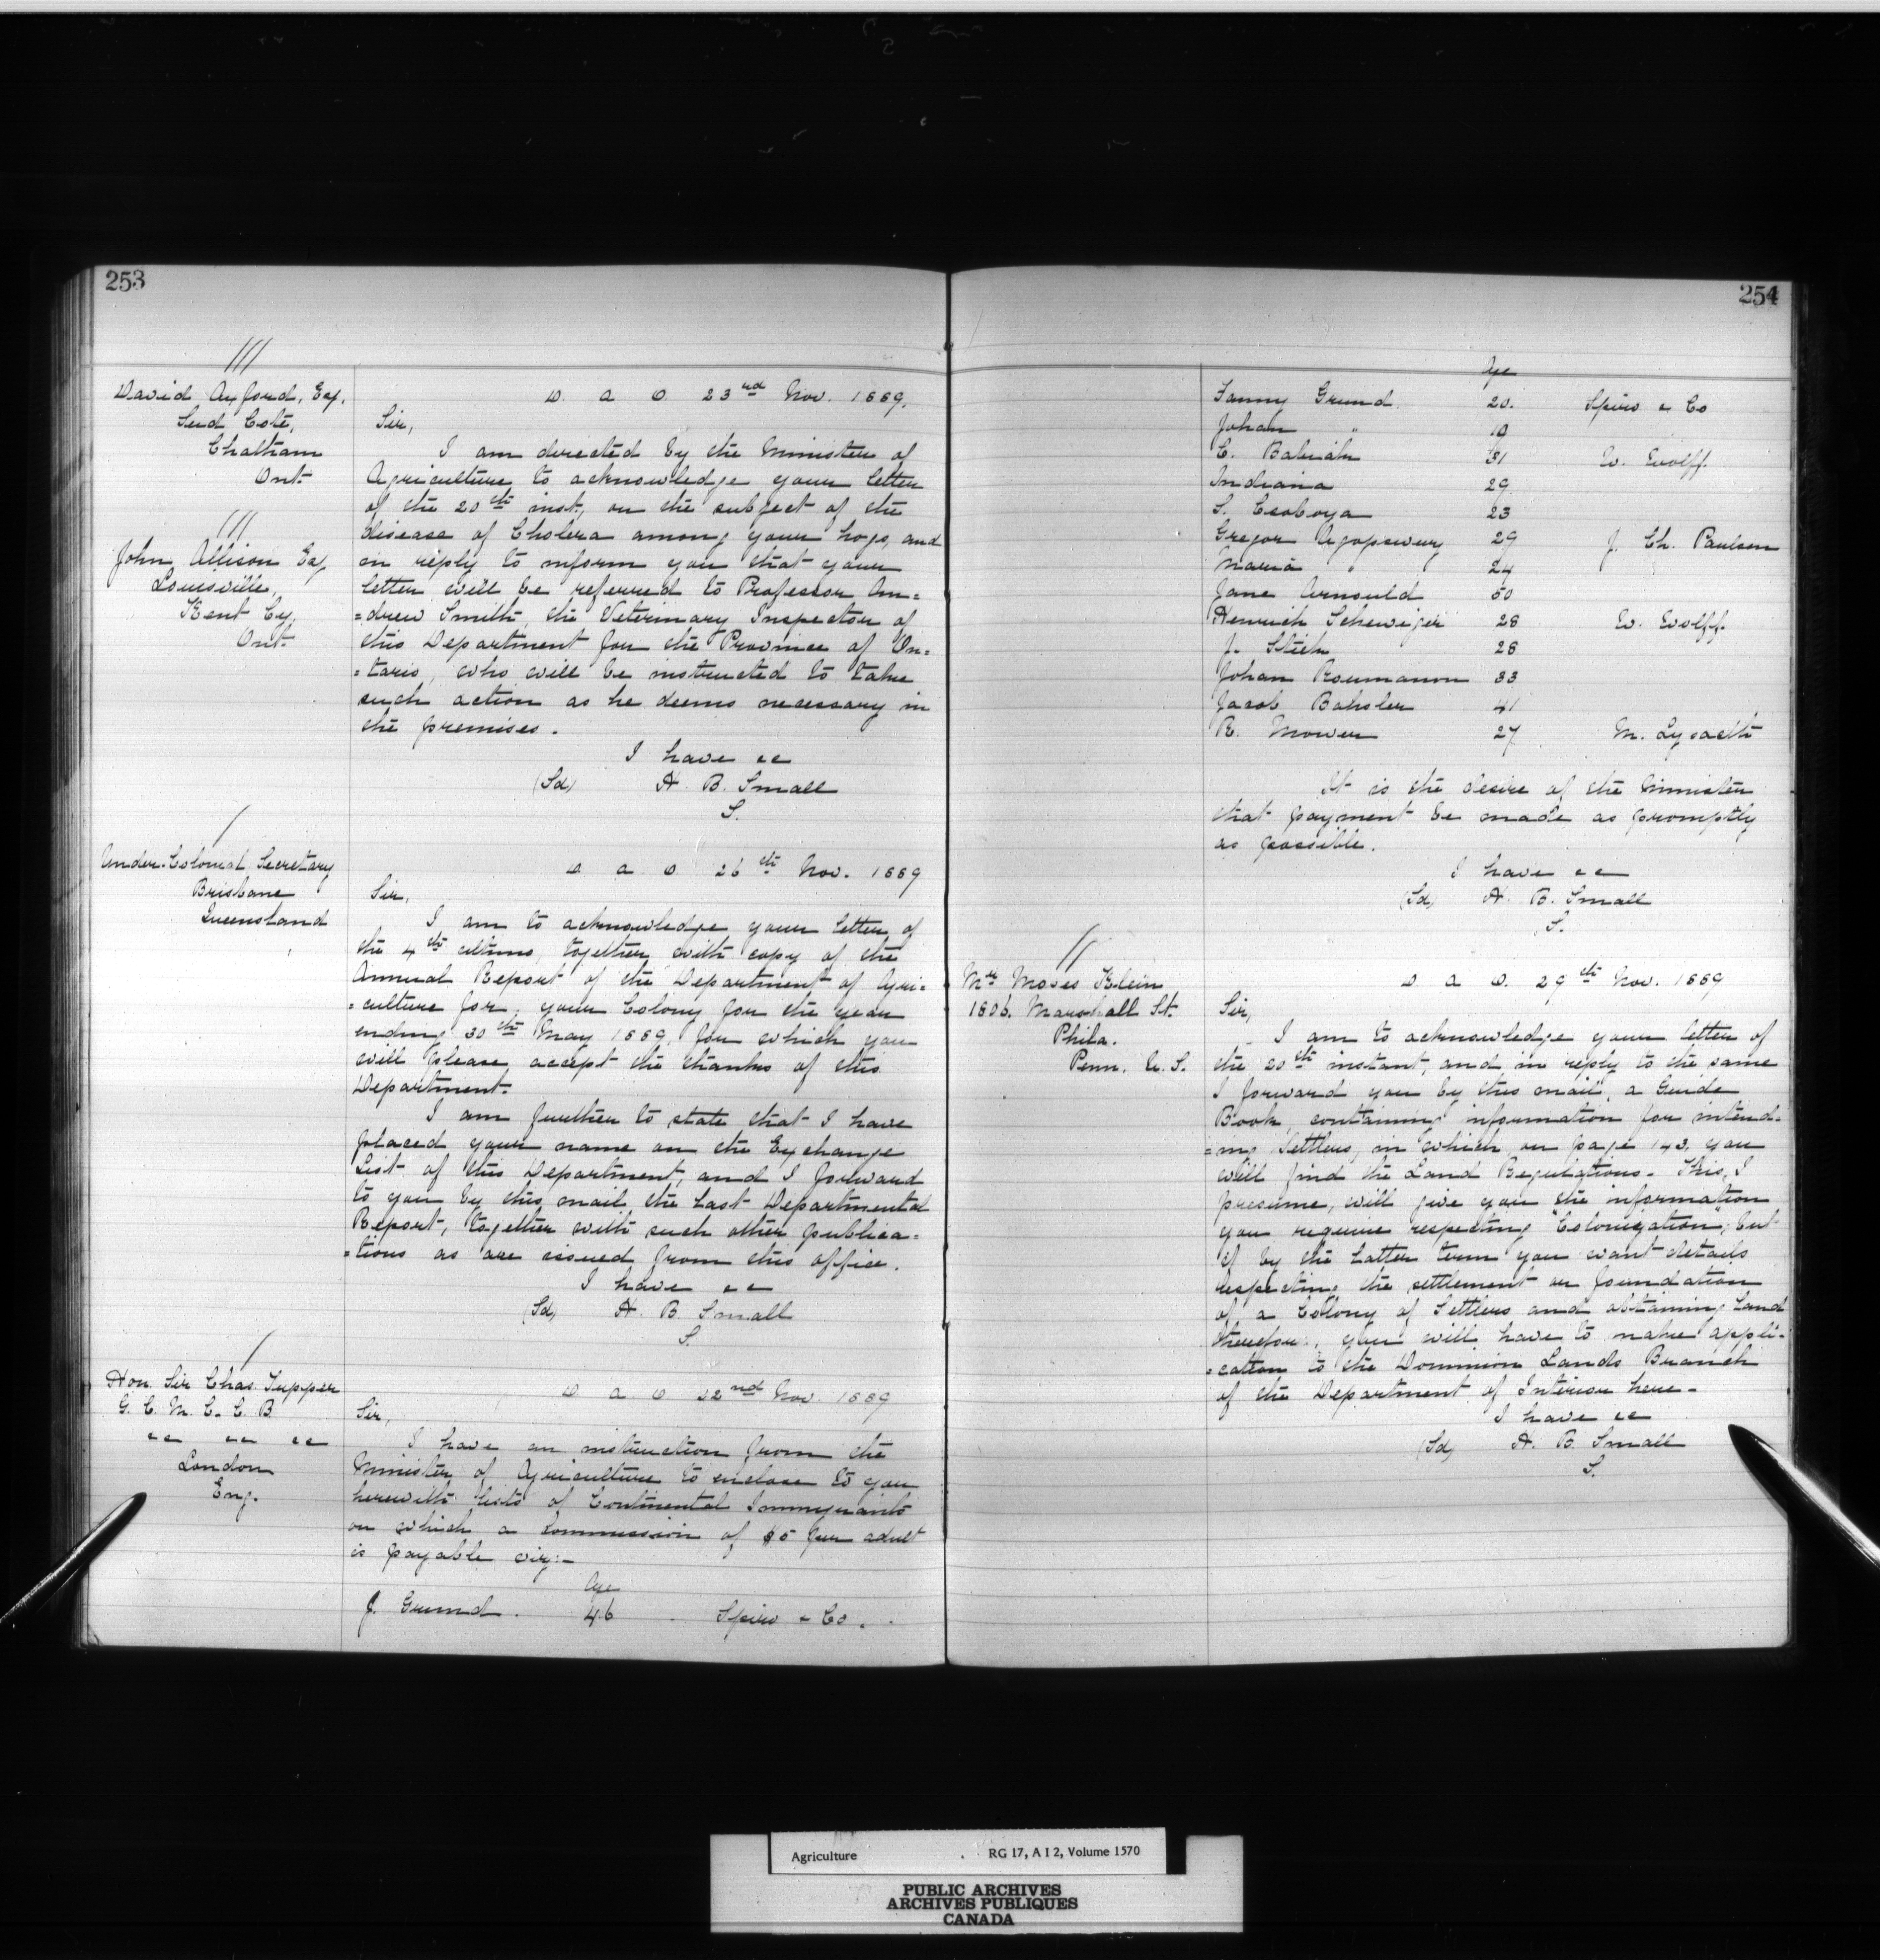 253
///
David Axford, Esq.
Send Coté,
Chatham
Ont.
///
John Allison Esq
Louisville,
Kent Cy,
Ont.
D. A. O. 23rd Nov. 1889.
Sir,
I am directed by the Minister of
Agriculture to acknowledge your letter
of the 20th inst., on the subject of the
disease of Cholera among your hogs, and
in reply to inform you that your
letter will be referred to Professor An=
=drew Smith, the Veterinary Inspector of
this Department for the Province of On=
=tario, who will be instructed to take
such action as he deems necessary in
the premises.
I have &c
(Sd) H. B. Small
S.
/
Under-Colonial Secretary
Brisbane
Queensland
D. A. O. 26th Nov. 1889
Sir,
I am to acknowledge your letter of
the 4th ultimo, together with copy of the
Annual Report of the Department of Agri=
=culture for your Colony for the year
ending 30th May 1889, for which you
will please accept the thanks of this
Department.
I am further to state that I have
placed your name on the Exchange
List of this Department, and I forward
to you by this mail the last Departmental
Report, together with such other publica=
=tions as are issued from this office.
I have &c
(Sd) H. B. Small
S.
/
Hon. Sir Chas. Tupper
G. C. M. G. C. B.
&c &c &c
London
Eng.
D. A. O. 22nd Nov 1889
Sir,
I have an instruction from the
Minister of Agriculture to enclose to you
herewith lists of Continental Immigrants
on which a Commission of $5 per adult
is payable viz:-
Age
J. Grund. 46 Spiro & Co.
254
Age
Fanny Grund. 20. Spiro & Co
Johan " 19
C. Babiah 31 W. Wolff.
Indiana 29
S. Csoboya 23
Gregor 29 J. Ch. Paulsen
Maria " 24
Jane Arnould 50
Henrich Scheweizer 28 W. Wolff.
J. Stieh 28
Johan Roumanon 33
Jacob Bahsler 41
R. Mower 27 M. Lysaeth
It is the desire of the Minister
that payment be made as promptly
as possible.
I have &c
(Sd) H. B. Small
S.
//
Mr Moses Klein
1806. Marshall St.
Phila.
Penn. U. S.
D. A. O. 29th Nov. 1889
Sir,
I am to acknowledge your letter of
the 20th instant, and in reply to the same
I forward you by this mail, a Guide
Book, containing information for intend-
=ing Settlers, in which, on page 143, you
will find the Land Regulations. This, I
presume, will give you the information
you require respecting "Colonization"; but
if by the latter term you want details
respecting the settlement or foundation
of a Colony of Settlers and obtaining land
therefor, you will have to make appli-
=cation to the Dominion Lands Branch
of the Department of Interior here.
I have &c
(Sd) H. B. Small
S.
Agriculture RG 17, A I 2, Volume 1570
PUBLIC ARCHIVES
ARCHIVES PUBLIQUES
CANADA